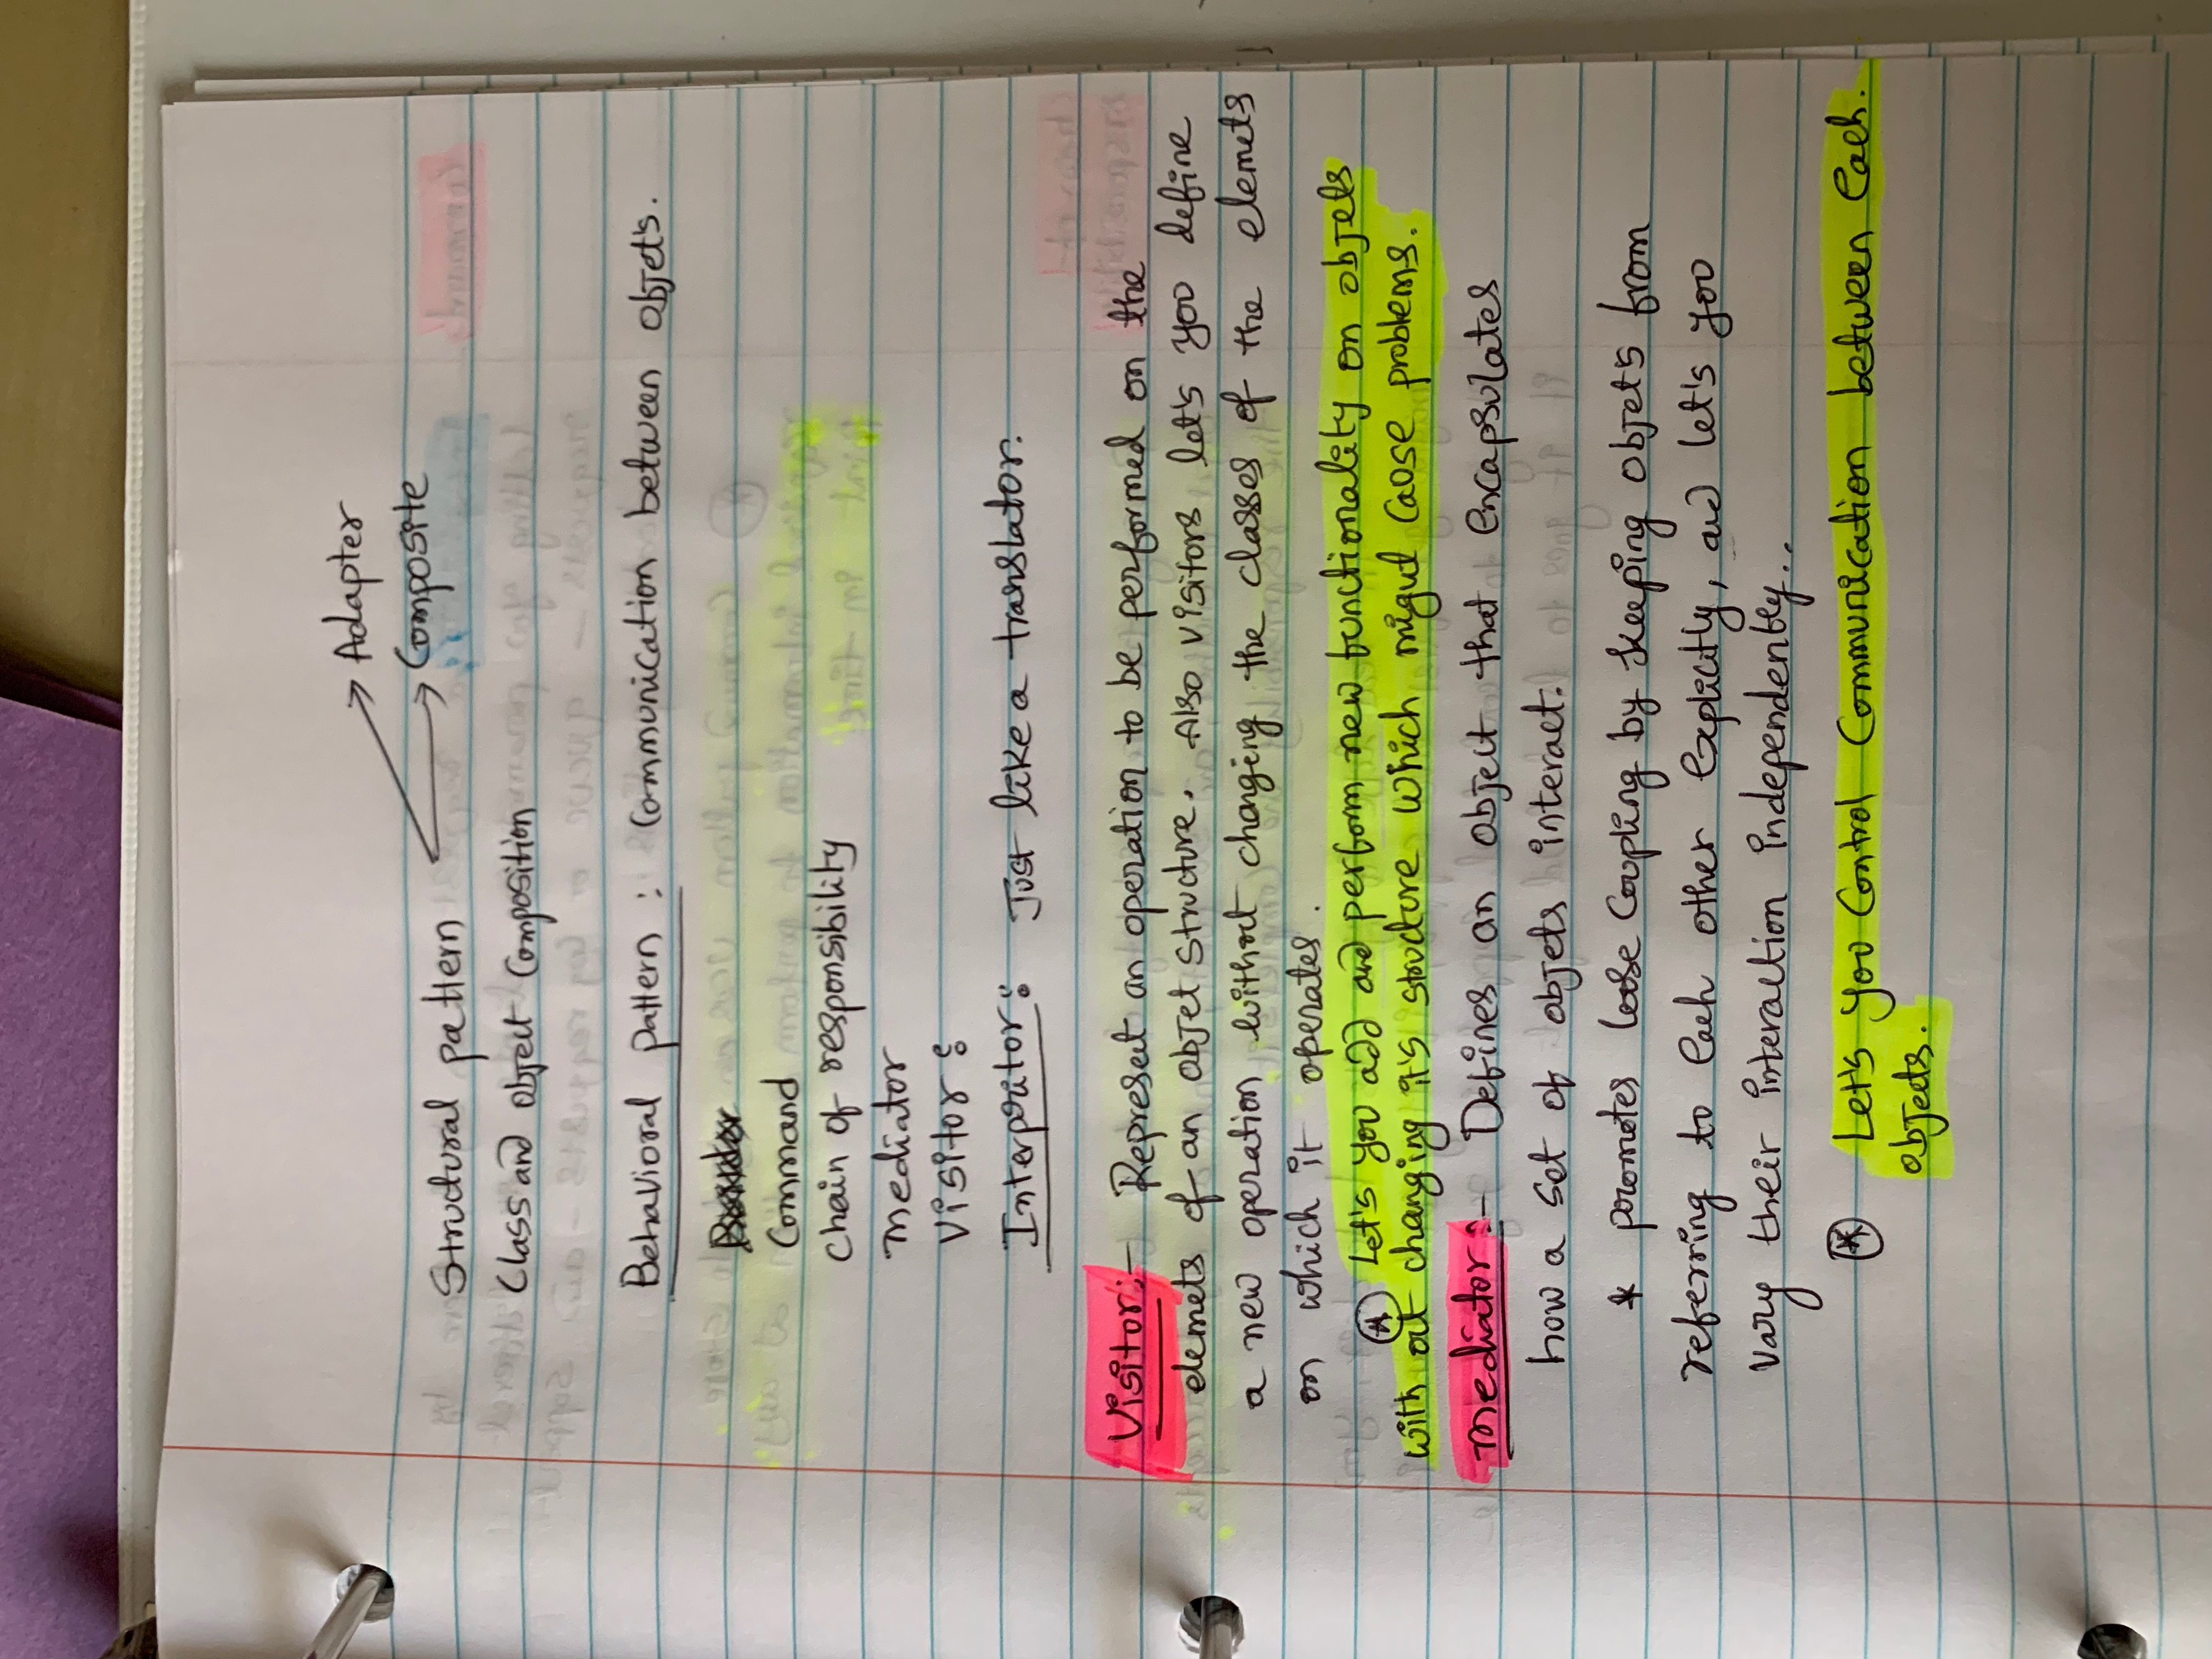 Adapter
Composite
Structural pattern
Class and object Composition
Behavioral pattern : Communication between objets.
Command
Chain of responsibility
Mediator
Visitor :
Interpritor : Just like a translator.
Visitor :- Represet an operation to be performed on the
elemets of an objet structure. Also visitors let's you define
a new operation without changing the classes of the elemets
on which it operates.
* Let's you add and perform new functionality on objets
with out changing it's structure which migut caose problems.
Mediator :- Defines an object that encapsulates
how a set of objets interact.
* promotes loose Coupling by keeping objets from
referring to each other explicitly, and let's you
vary their interaction independently..
* Let's you Control Communication between Each.
objects.